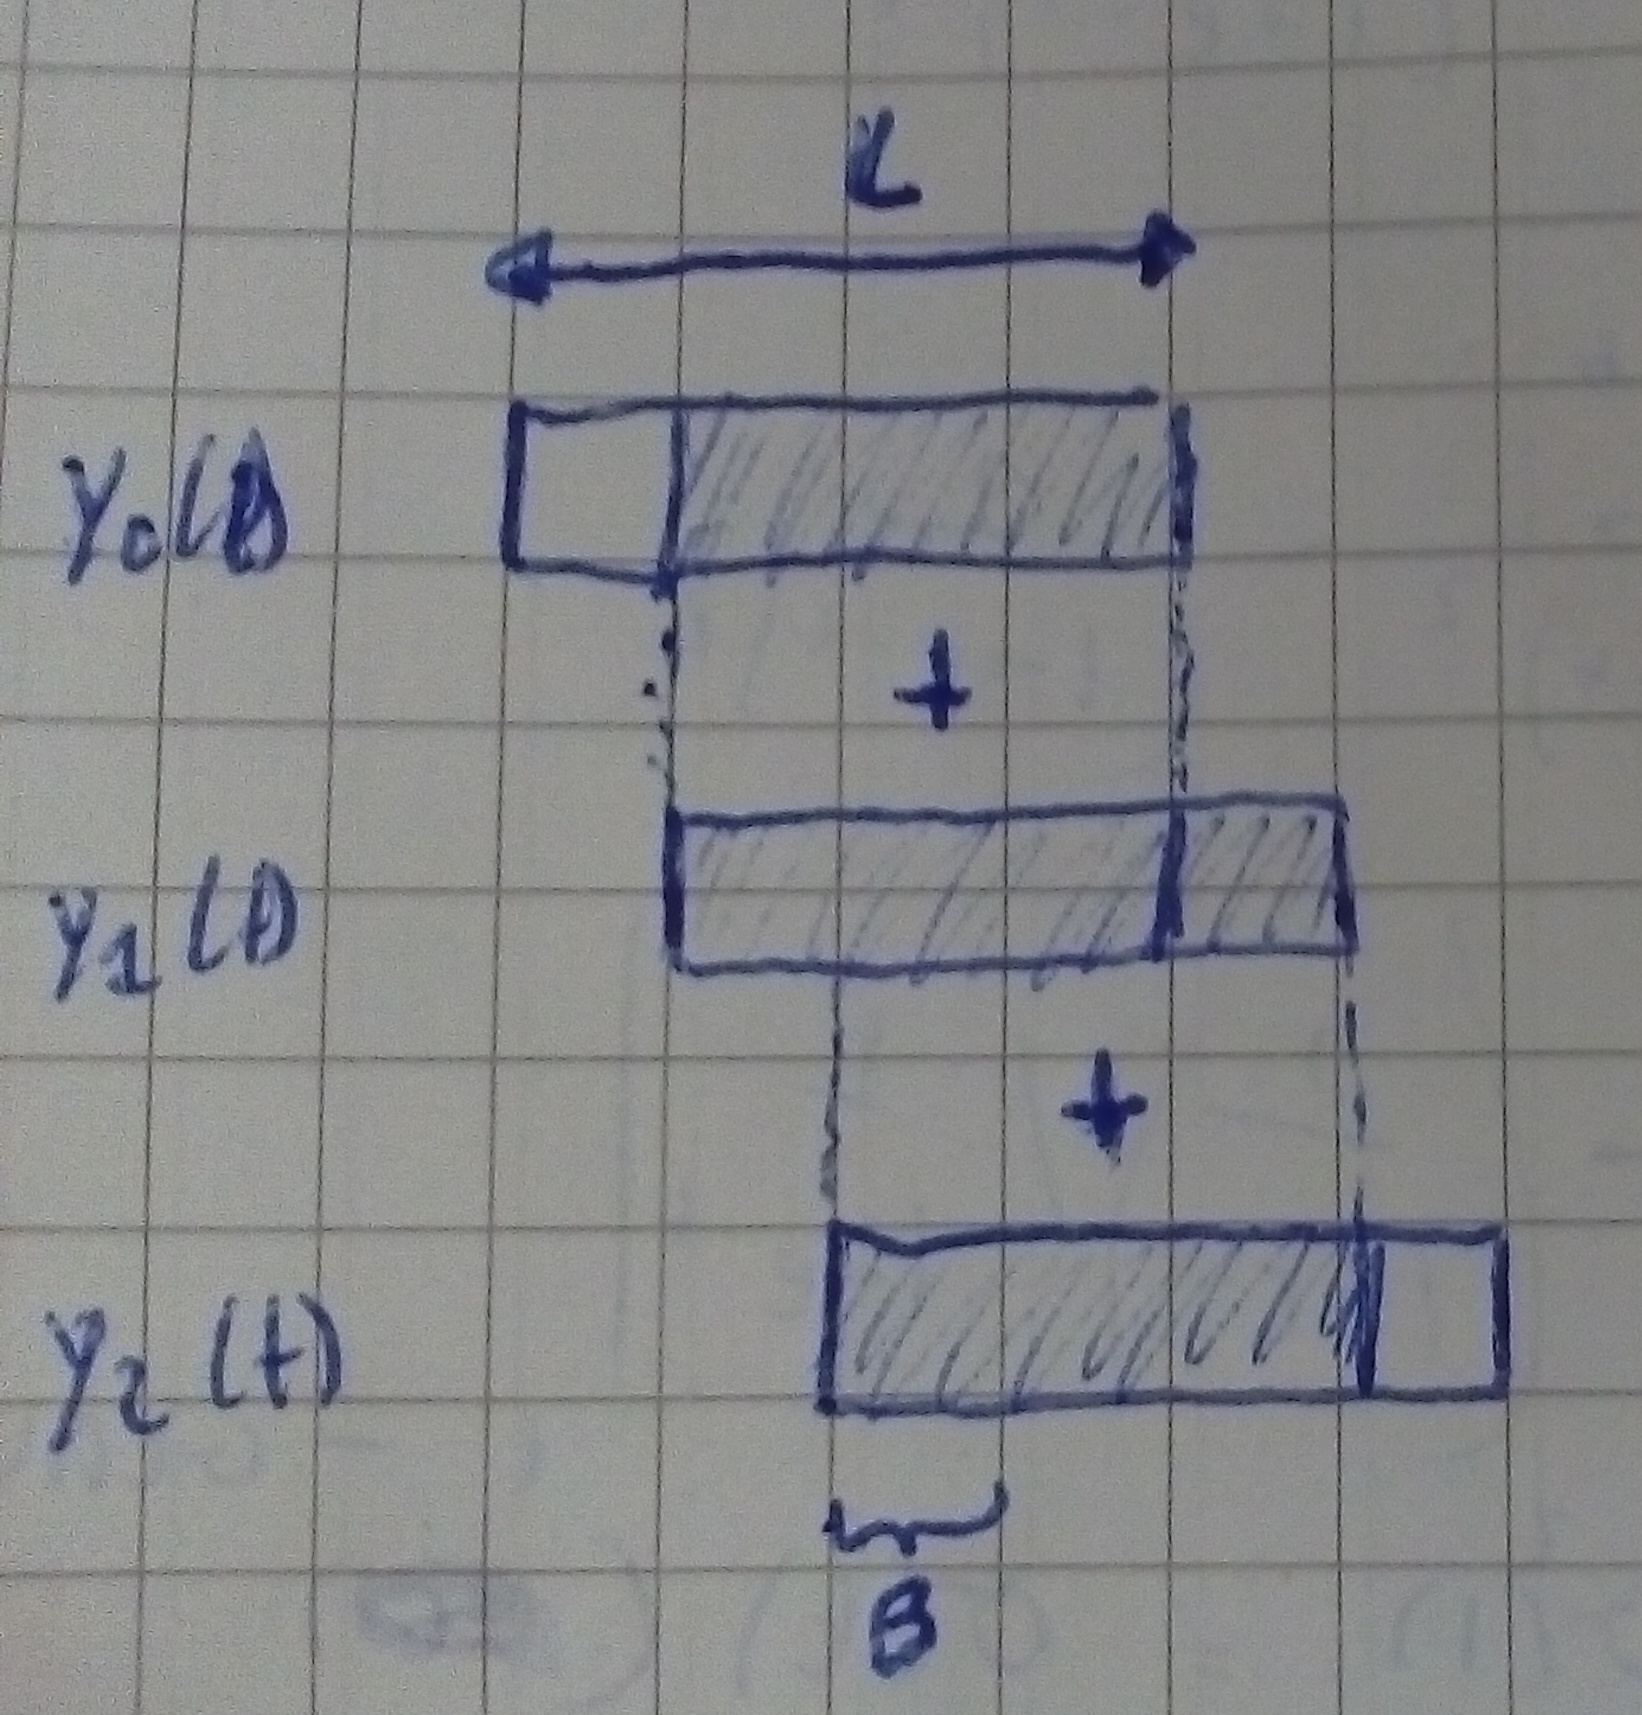 L
y₀(t)
+
y₁(t)
+
y₂(t)
B